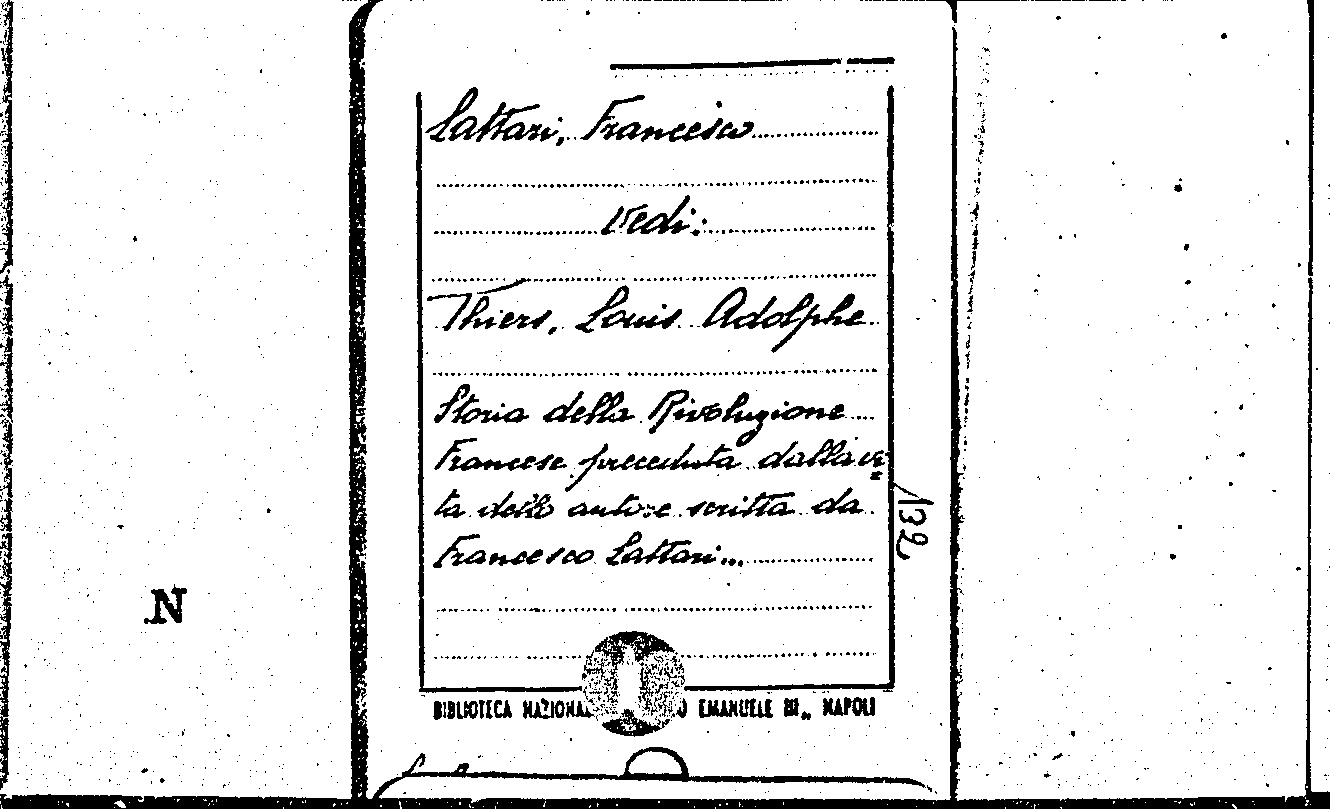 Lattari, Francesco
Vedi:
Thiers, Louis Adolphe
Storia della Rivoluzione
Francese preceduta dalla vi
ta dello autore scritta da
Francesco Lattari...
132
N
BIBLIOTECA NAZIONA O EMANUELE III„ NAPOLI